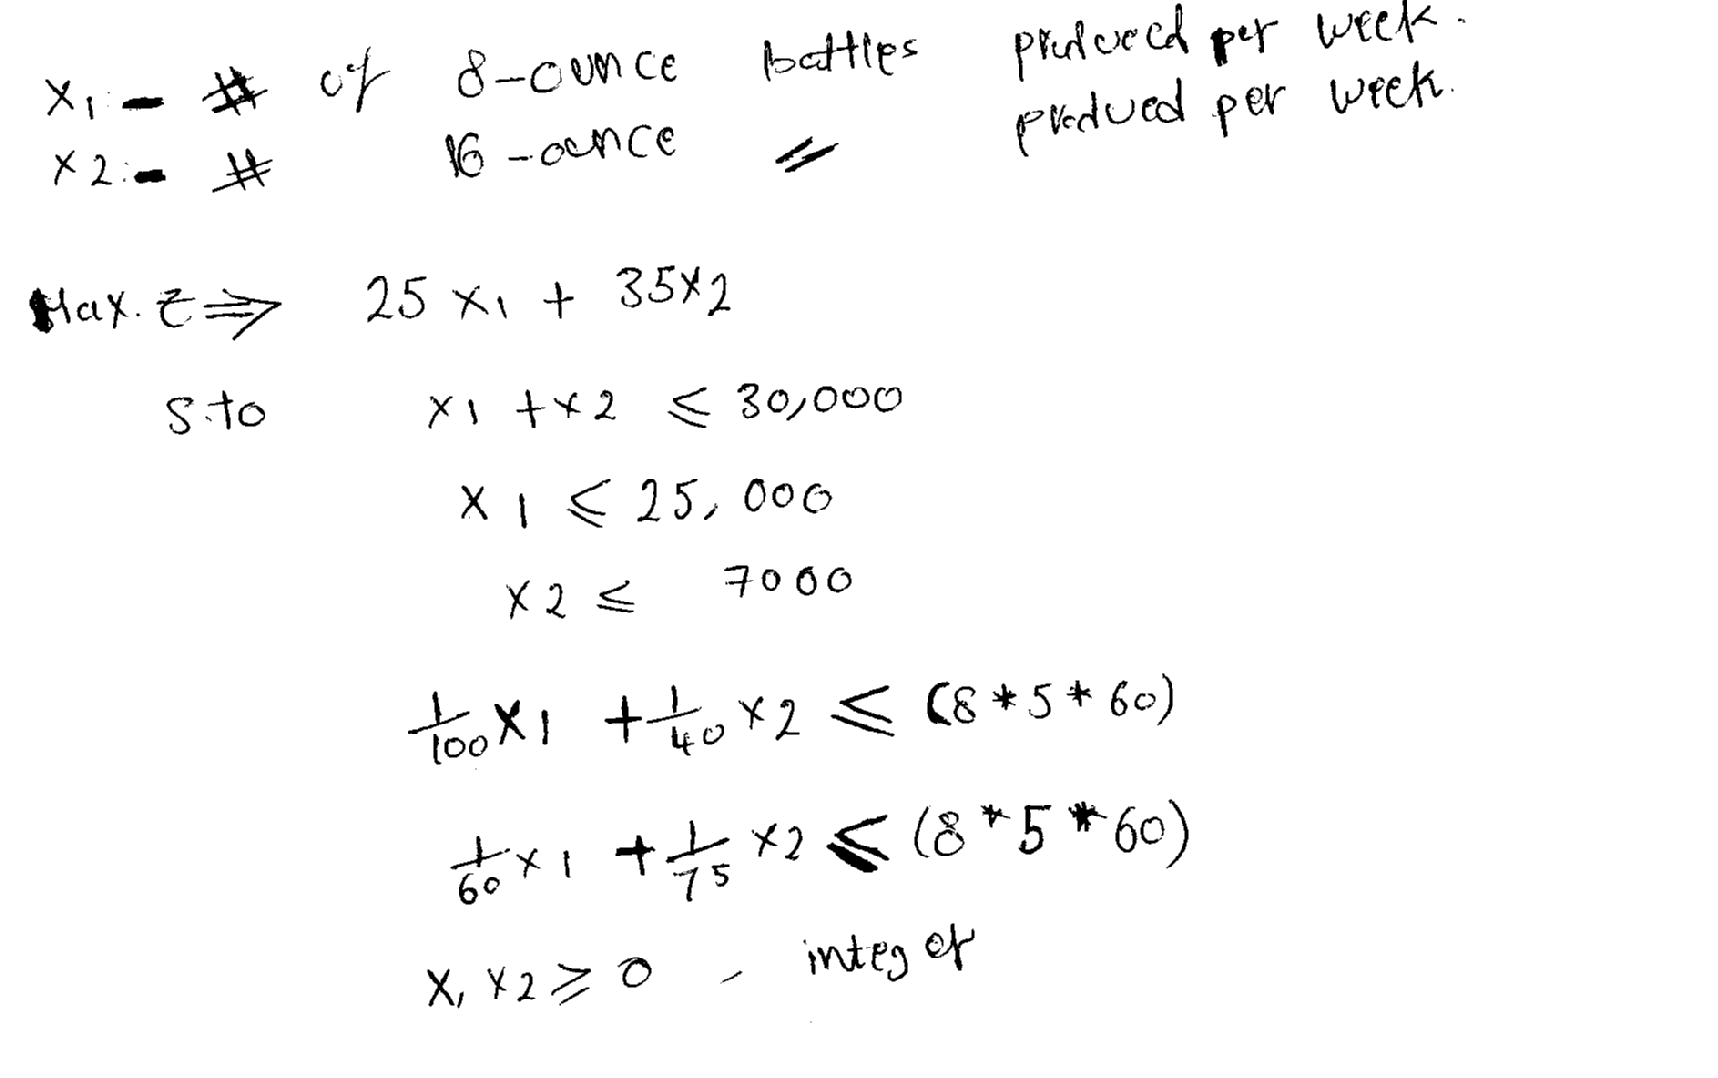 X1:- # of 8-ounce bottles produced per week.
X2:- # 16-ounce 〃 produed per week.
Max. Z ⇒ 25 x1 + 35x2
S.to x1 + x2 ≤ 30,000
x1 ≤ 25,000
x2 ≤ 7000
1/100 x1 + 1/40 x2 ≤ (8*5*60)
1/60 x1 + 1/75 x2 ≤ (8*5*60)
x1 x2 ≥ 0 - integer